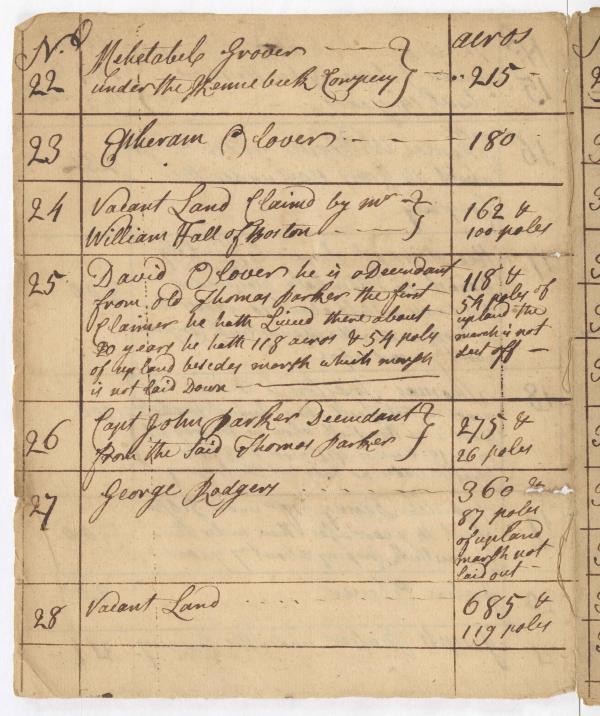 No acros
22 Mehetabel Grover
under the Kennebeck Company 215
23 Epheram Olover 180
24 Vacant Land Claimed by mr 162 &
William Hall of Boston 100 poles
25 David Olover he is a Decundant 118 &
from old Thomas Parker the first 54 poles of
Claimer he hath Lived there about upland the
20 years he hath 118 acros & 54 poles marsh is not
of up land besides marsh which marsh Sect off
is not Laid Down
26 Capt John Parker Decundant 275 &
from the Said Thomas Parker 26 poles
27 George Rodgers 360 &
87 poles
of upland
marsh not
Laid out
28 Vacant Land 685 &
119 poles